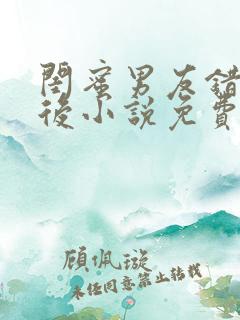 閨蜜男友錯
後小說免費
顧佩璇
未经同意禁止转载